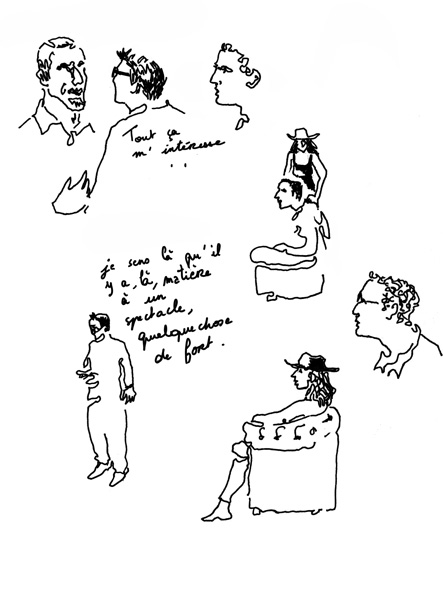 Tout ça
m'intéresse
..
je sens là qu'il
y a, là, matière
à un
spectacle,
quelque chose
de fort.